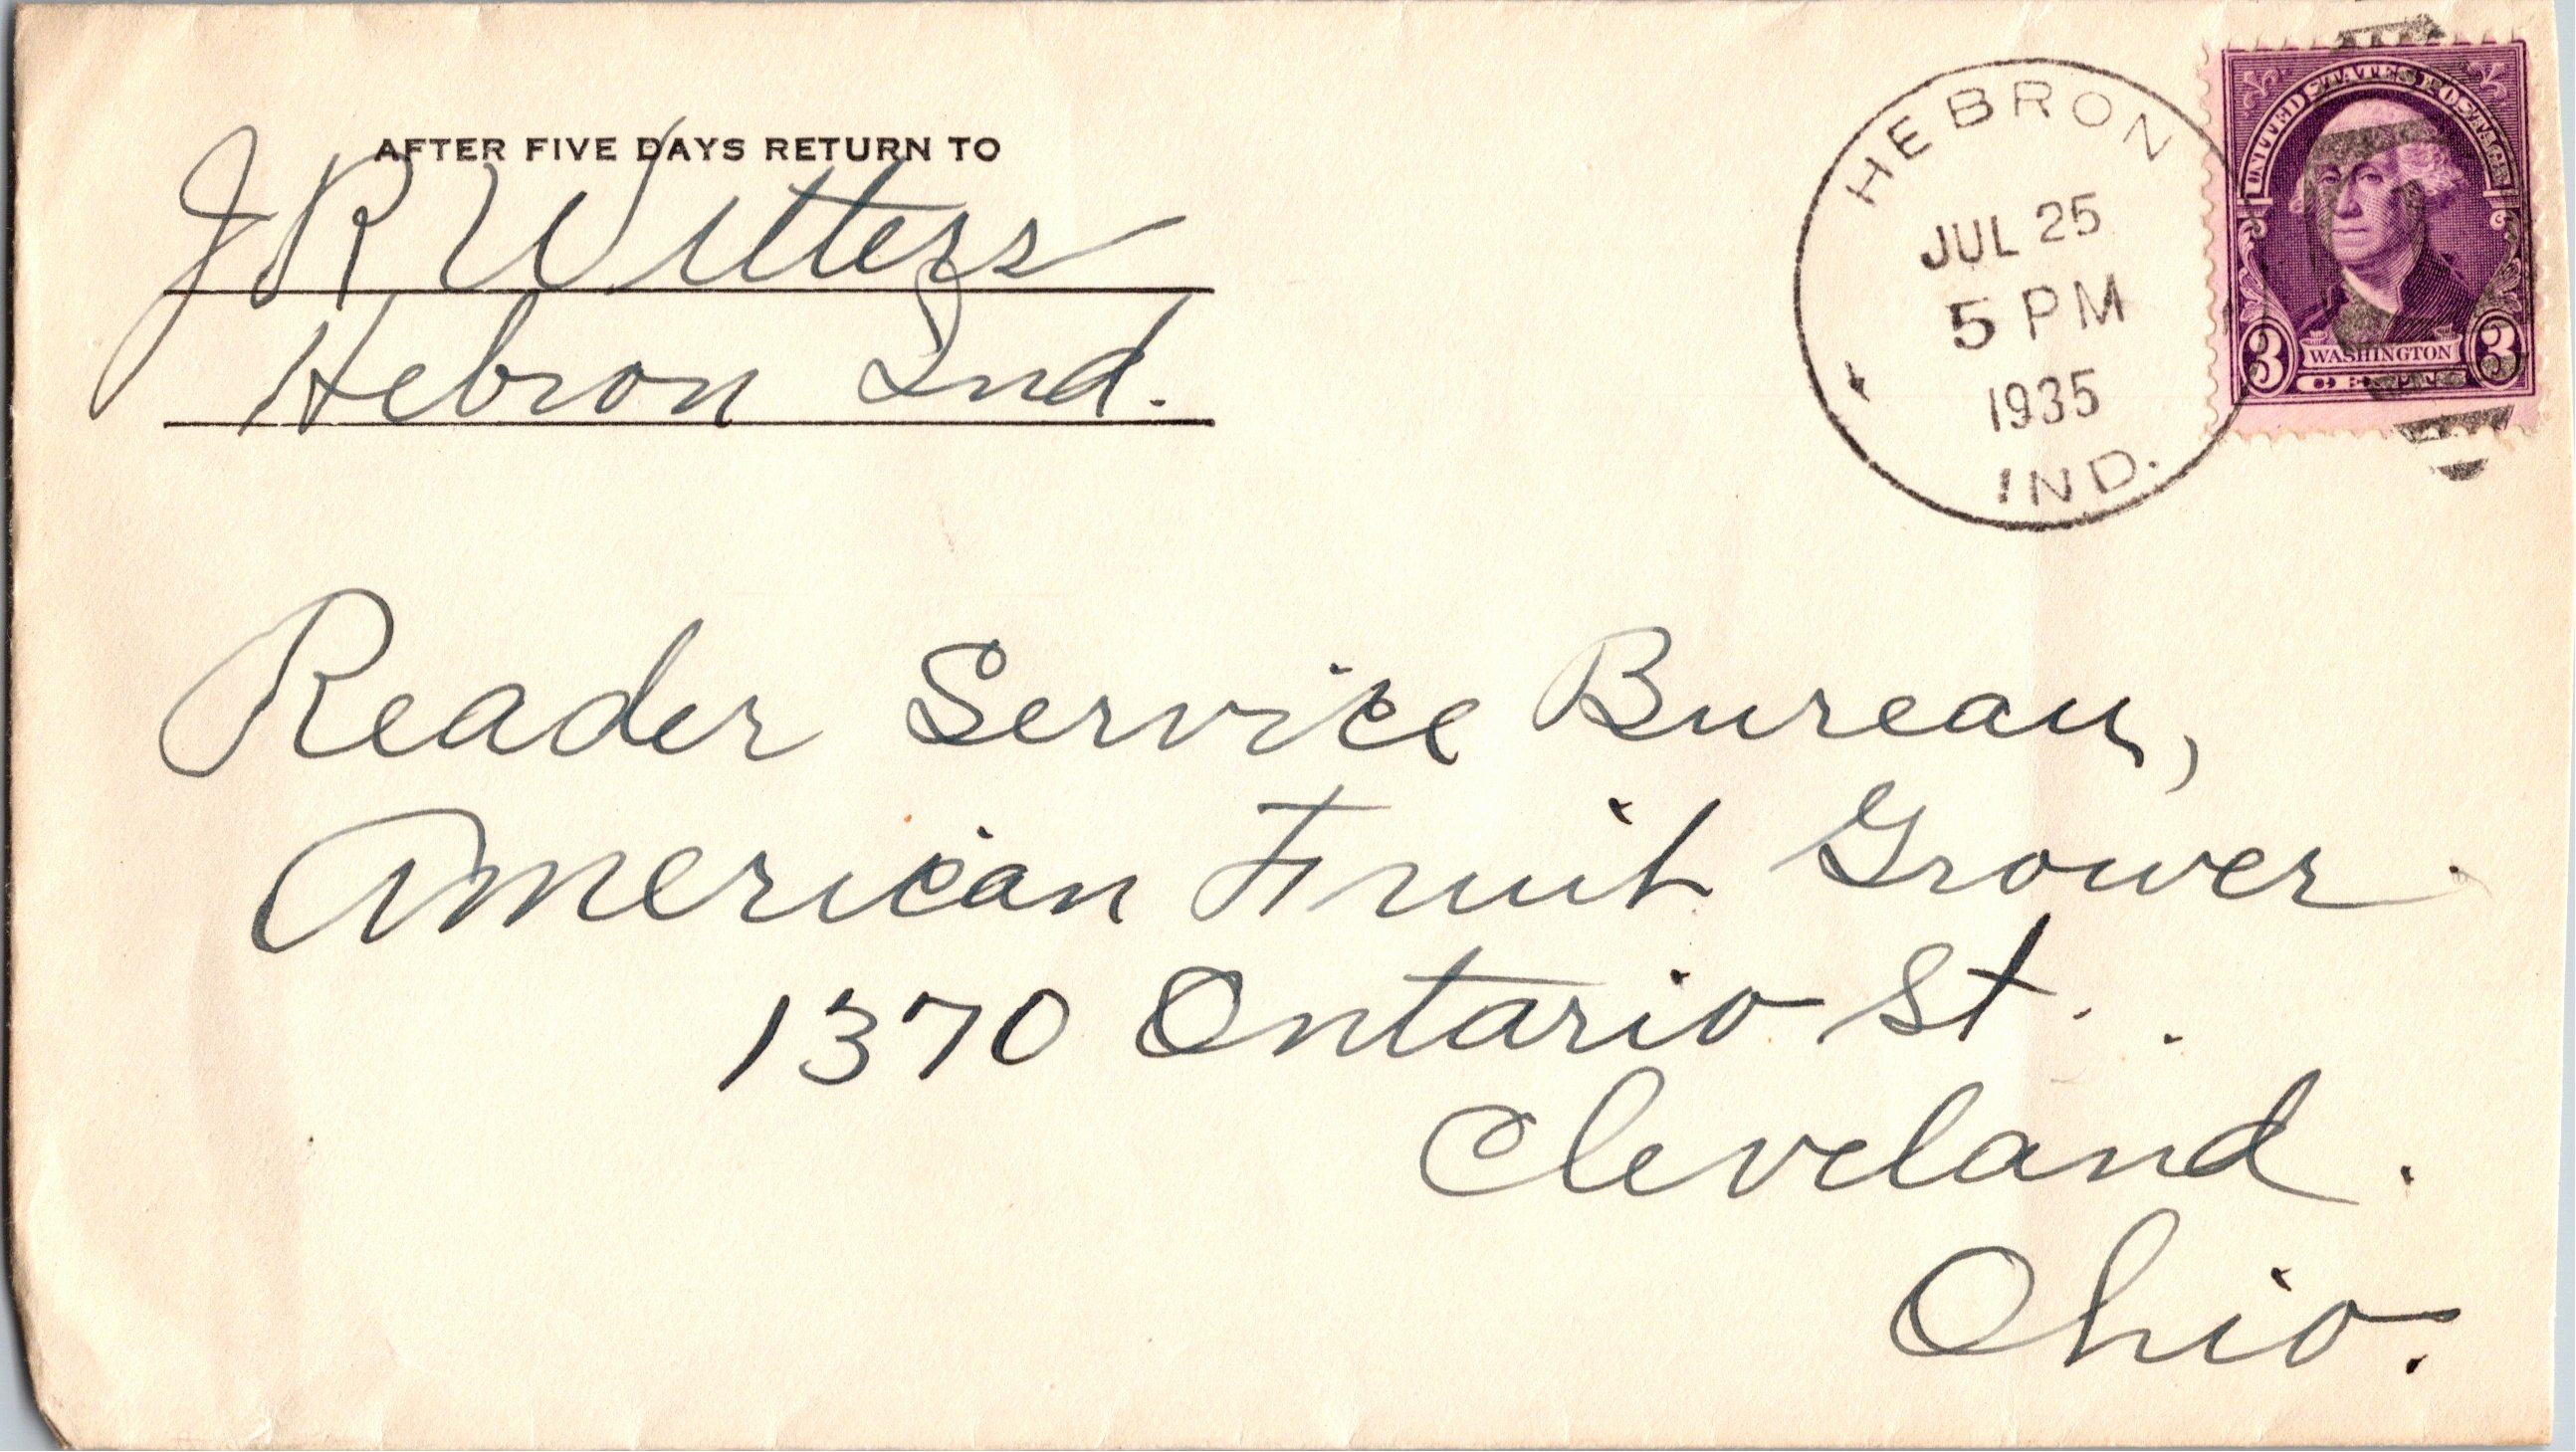 AFTER FIVE DAYS RETURN TO
J R Witters
Hebron Ind.
HEBRON
JUL 25
5 PM
1935
IND.
UNITED STATES POSTAGE
3 WASHINGTON 3
Reader Service Bureau,
American Fruit Grower.
1370 Ontario St.
Cleveland.
Ohio.